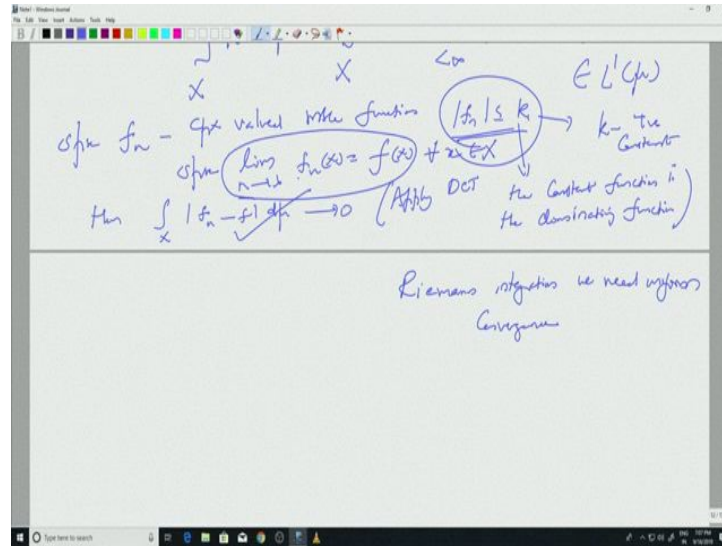 Note1 - Windows Journal
File Edit View Insert Actions Tools Help
X X <∞ ∈ L'(μ)
Spse fn - cpx valued mble functions |fn| ≤ k → k - +ve Constant
Spse lim n→∞ fn(x) = f(x) ∀ x ∈ X
then ∫ X |fn - f| dμ → 0 (Apply DCT the Constant function is
the dominating function)
Riemann integration we need uniform
Convergence
Type here to search
7:07 PM